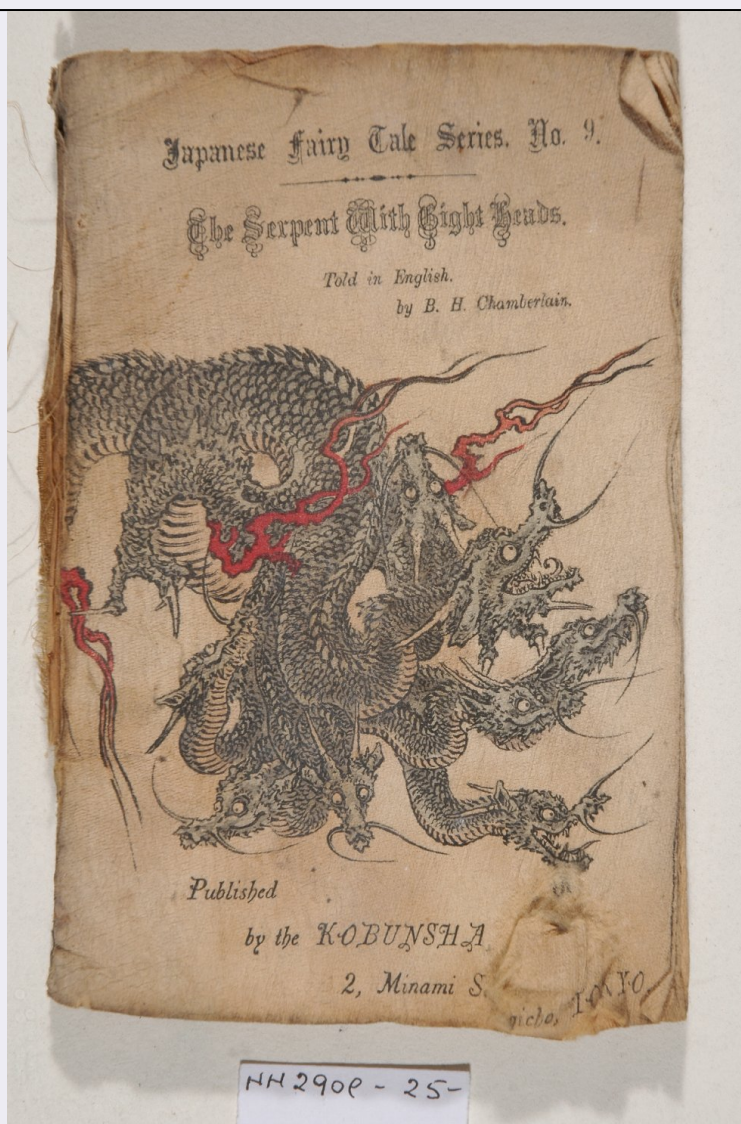 Japanese Fairy Tale Series. No. 9.
The Serpent With Eight Heads.
Told in English.
by B. H. Chamberlain.
Published
by the KOBUNSHA
2, Minami S.
TOKYO.
HH290e - 25-